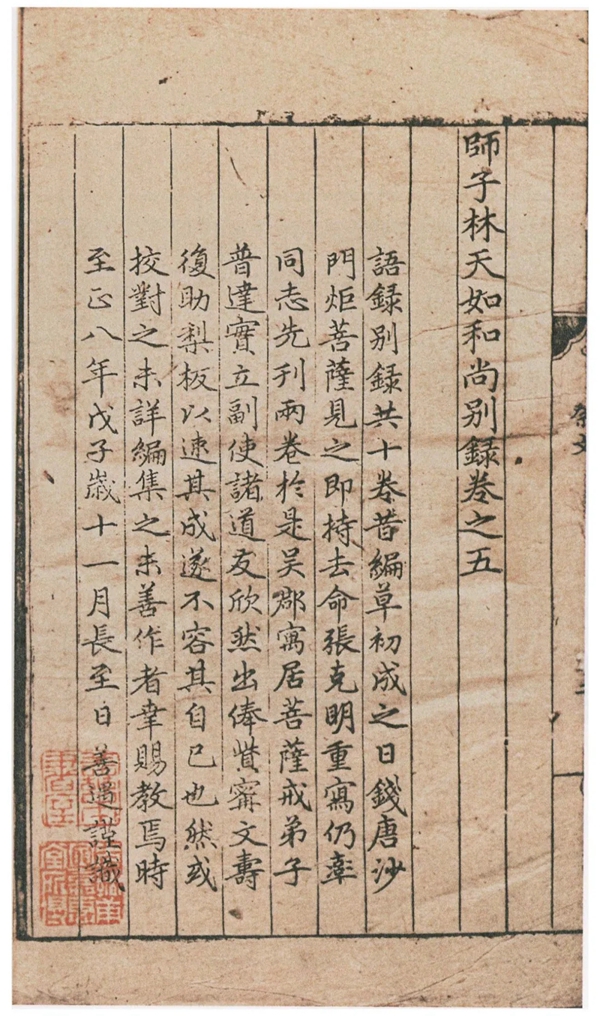 師子林天如和尚别錄卷之五
語録别録共十卷昔編草初成之日錢唐沙
門炬菩薩見之即持去命張克明重寫仍率
同志先刊兩卷於是吴郡寓居菩薩戒弟子
普達實立副使諸道友欣然出俸貲甯文壽
復助梨板以速其成遂不容其自已也然或
挍對之未詳編集之未善作者幸賜教焉時
至正八年戊子歲十一月長至日 善遇謹識